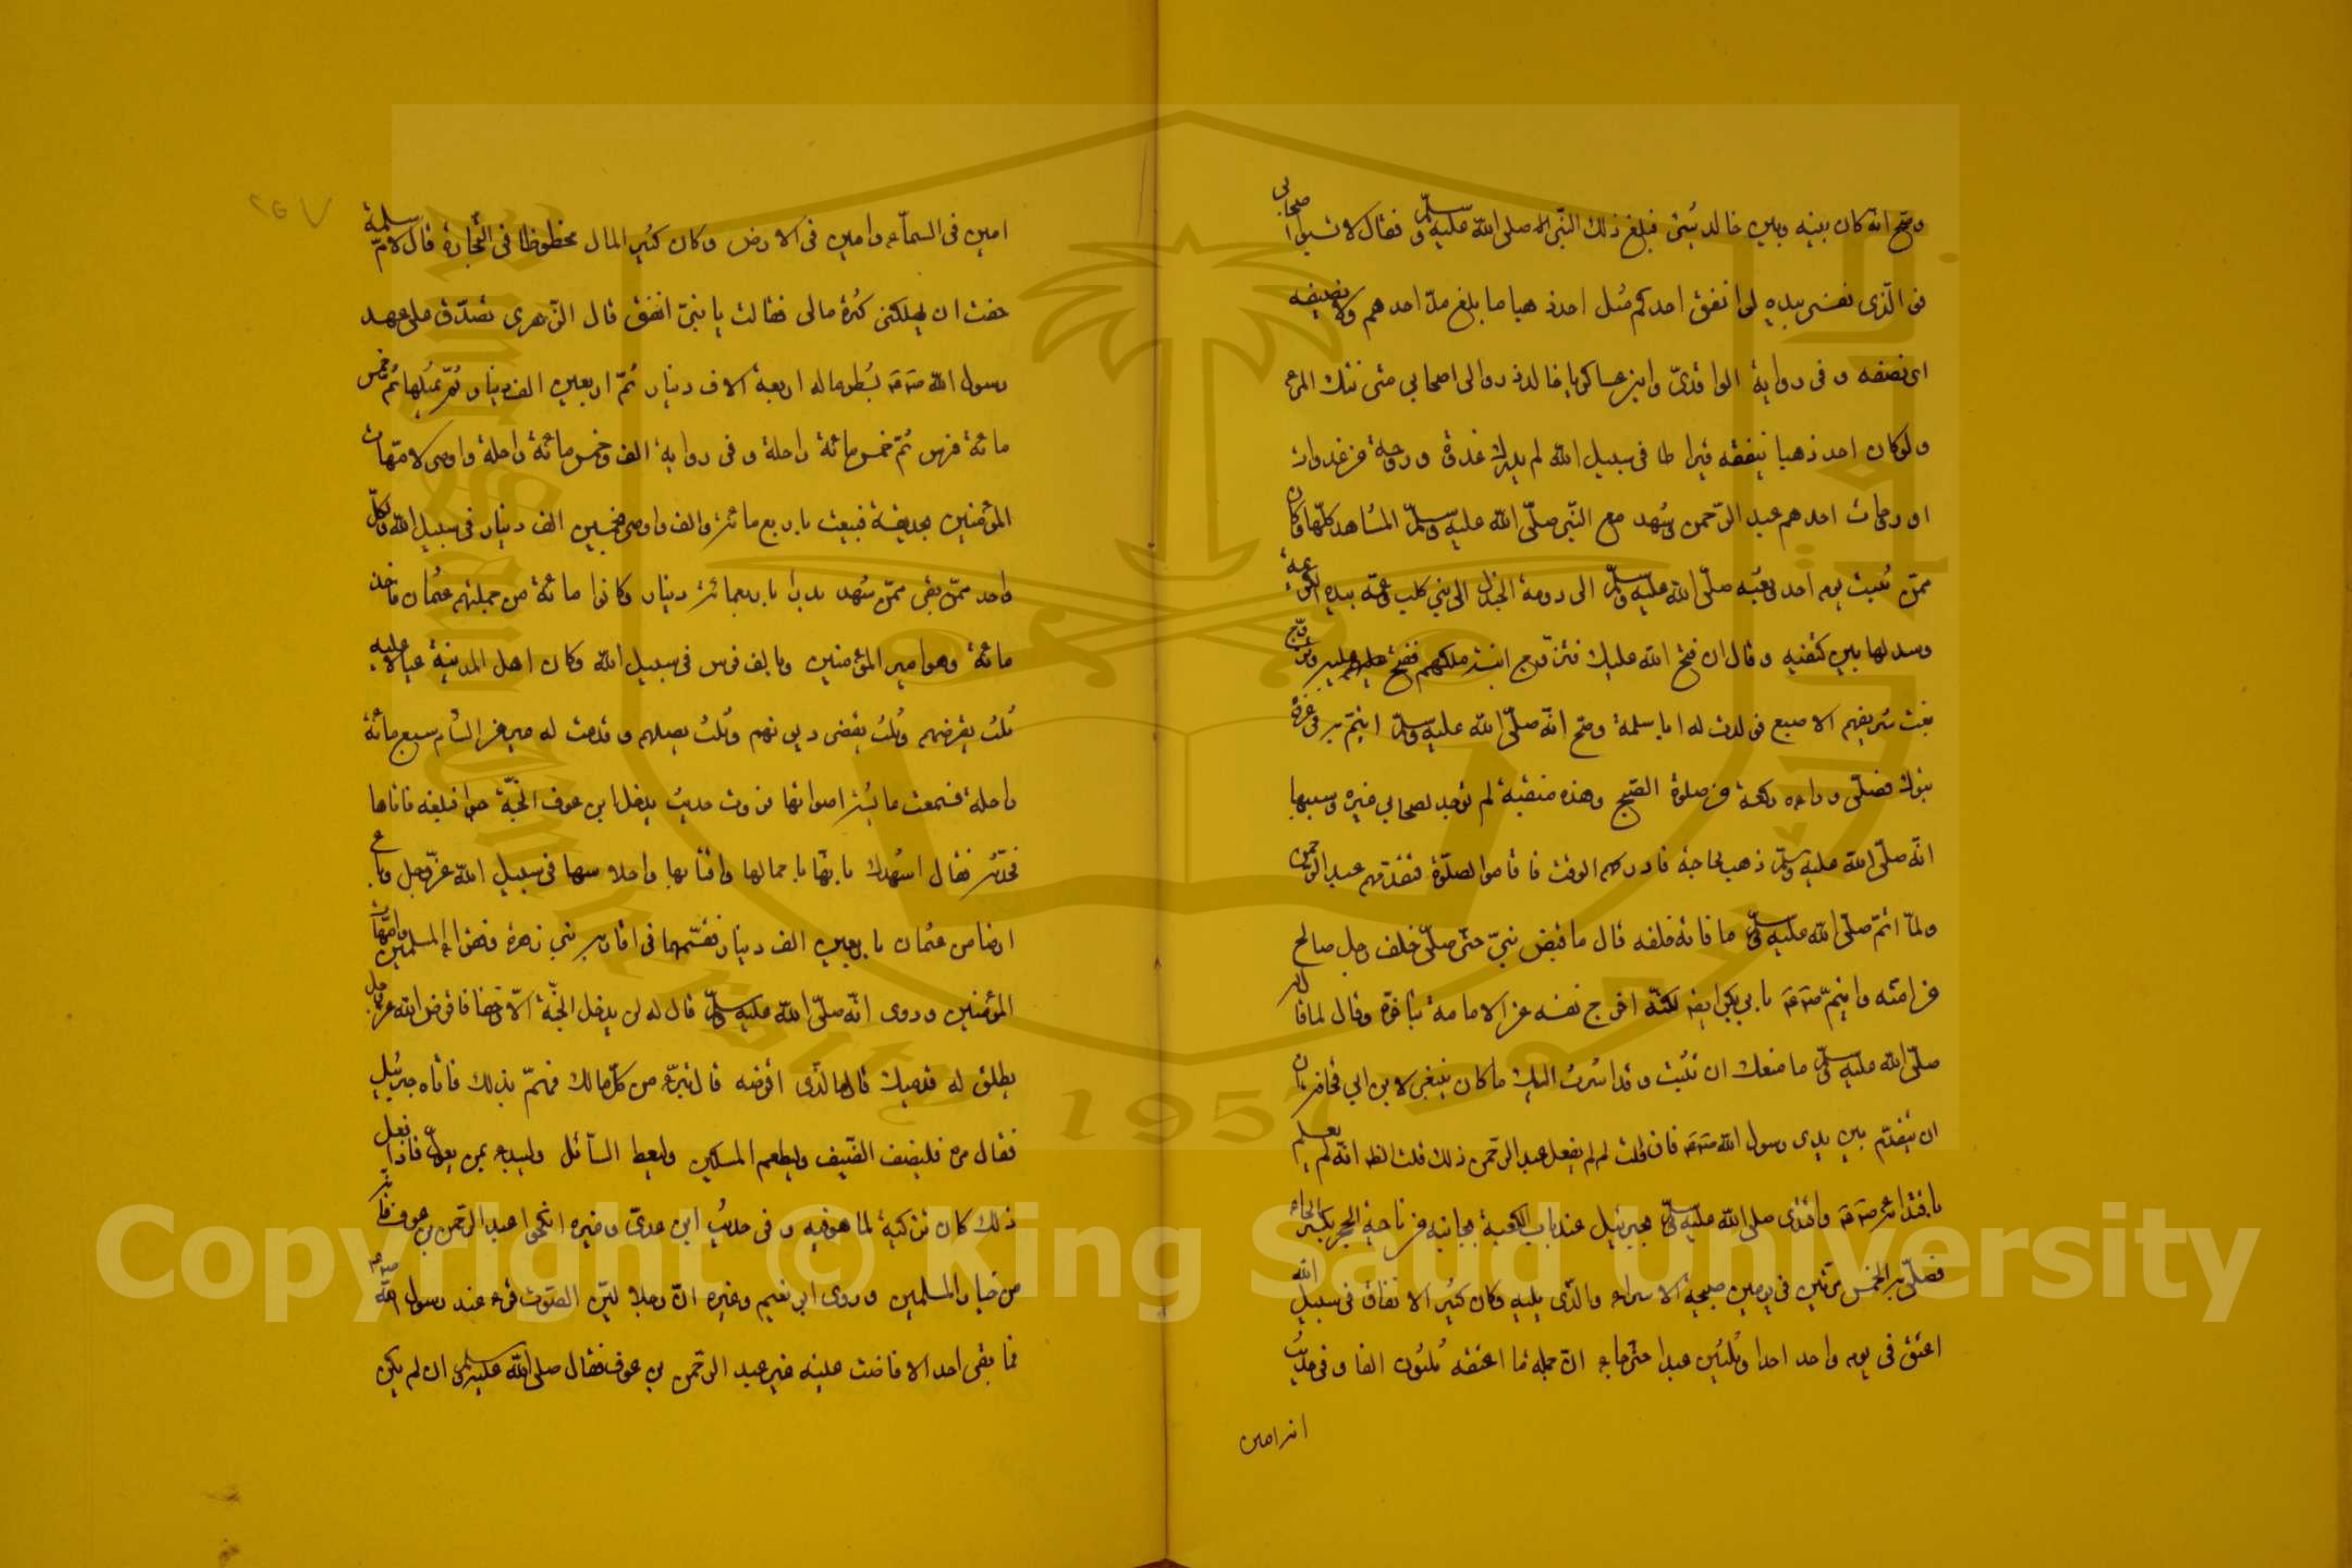 وصح انه كان بينه وبين خالد شئ فبلغ ذلك النبي صلى الله عليه وسلم فقال لا تسبوا اصحابى
فو الذى نفسى بيده لو انفق احدكم مثل احد ذهبا ما بلغ مد احدهم ولا نصيفه
اى نصفه وفى رواية الواقدى وابن عساكر يا خالد ذروا لى اصحابى متى ينك المرء
ولو كان احد ذهبا ينفقه قيراطا فى سبيل الله لم يدرك غدوة وروحة من غدوات
او روحات احدهم عبد الرحمن وشهد مع النبى صلى الله عليه وسلم المشاهد كلها وكان
ممن ثبت يوم احد وبعثه صلى الله عليه وسلم الى دومة الجندل الى بنى كلب وعممه بيده الكريمة
وسدلها بين كتفيه وقال ان فتح الله عليك فتزوج ابنة ملكهم ففتح عليه وتزوج
بنت شريفهم الاصبع فولدت له ابا سلمة وصح انه صلى الله عليه وسلم ائتم به فى غزوة
تبوك فصلى وراءه ركعة من صلوة الصبح وهذه منقبة لم توجد لصحابى غيره وسببها
انه صلى الله عليه وسلم ذهب لحاجة فادركهم الوقت فاقاموا الصلوة فتقدمهم عبد الرحمن
ولما اتم صلى الله عليه وسلم ما فاته خلفه قال ما قبض نبى حتى صلى خلف رجل صالح
من امته وايتم بابى بكر ايضا لكنه اخرج نفسه عن الامامة بتاخره وقال لما قال له
صلى الله عليه وسلم ما منعك ان تثبت وقد اشرت اليك ما كان ينبغى لابن ابى قحافة
ان يتقدم بين يدى رسول الله فان قلت لم لم يفعل عبد الرحمن ذلك قلت انه لم يعلم
واقتدى صلى الله عليه وسلم بجبرئيل عند باب الكعبة بجانبه من ناحية الحجر بكسر الحاء
فصلى به الخمس مرتين فى يومين صبيحة الاسراء والذى يليه وكان كثير الانفاق فى سبيل الله
اعتق فى يوم واحد احدا وثلثين عبدا حتى جاء ان جملة ما اعتقه ثلثون الفا وفى حديث
انه امين
امين فى السماء وامين فى الارض وكان كثير المال محظوظا فى التجارة قال لام سلمة
خفت ان يهلكنى كثرة مالى فقالت يا بنى انفق قال الزهرى تصدق على عهد
رسول الله بشطر ماله اربعة الاف دينار ثم اربعين الف دينار ثم بمثلها ثم خمس
مائة فرس ثم خمس مائة راحلة وفى رواية الف وخمس مائة راحلة واوصى لامهات
المؤمنين بحديقة فبيعت باربع مائة والف واوصى بخمسين الف دينار فى سبيل الله ولكل
واحد ممن بقى ممن شهد بدرا باربعمائة دينار وكانوا مائة من جملتهم عثمان فاخذ
مائة وهو امير المؤمنين وبالف فرس فى سبيل الله وكان اهل المدينة عيالا عليه
ثلث يقرضهم وثلث يقضى ديونهم وثلث يصلهم وقدمت له عير من الشام سبع مائة
راحلة فسمعت عايشة اصواتها فروت حديث يدخل ابن عوف الجنة حبوا فبلغه فاتاها
فحدثته فقال اشهدك بانها باحمالها واقتابها واحلاسها فى سبيل الله عز وجل وباع
ارضا من عثمان باربعين الف دينار فقسمها فى اقاربه بنى زهرة وفقراء المسلمين وامهات
المؤمنين وروى انه صلى الله عليه وسلم قال له لن يدخل الجنة الا زحفا فاقرض الله عز وجل
يطلق له قدميك قال ما الذى اقرضه قال تبرء من كل مالك فهم بذلك فاتاه جبرئيل
فقال مره فليضف الضيف وليطعم المسكين وليعط السائل وليبدء بمن يعول فاذا فعل
ذلك كان تزكية لما هو فيه وفى حديث ابن عدى وغيره انكحوا عبد الرحمن بن عوف فانه
من خيار المسلمين وروى ابو نعيم وغيره ان رجلا لين الصوت قرء عند رسول الله
فما بقى احد الا فاضت عينه غير عبد الرحمن بن عوف فقال صلى الله عليه وسلم ان لم يكن
Copyright © King Saud University
1957